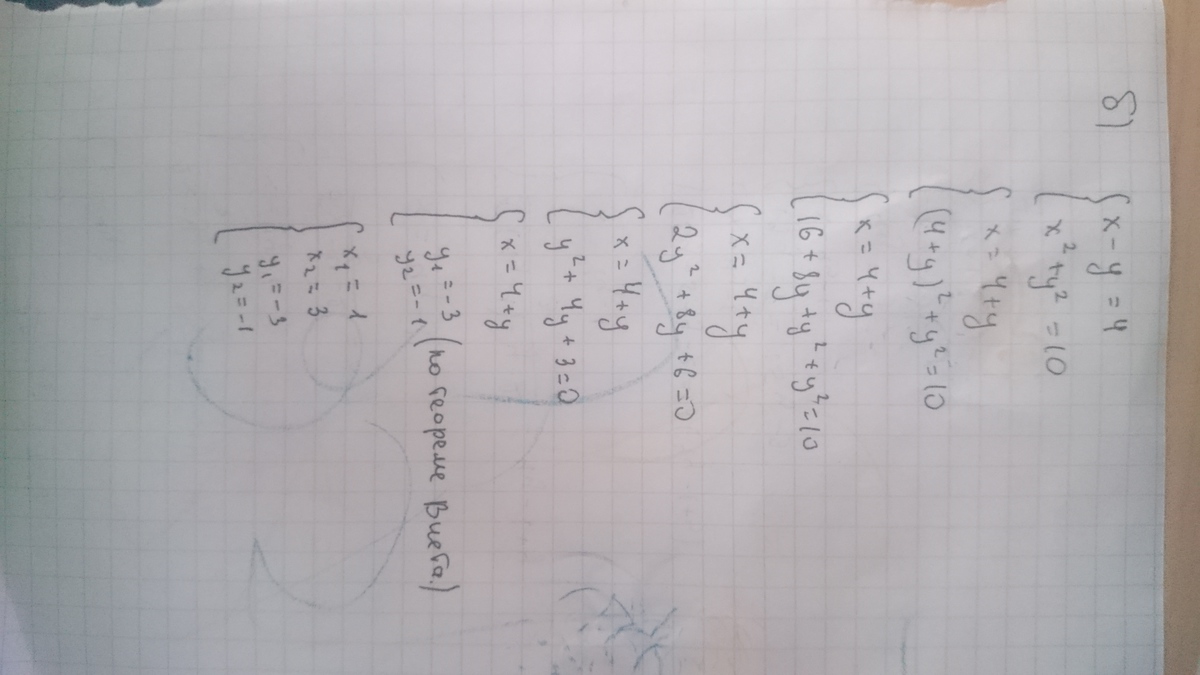 б)
{ x - y = 4
x² + y² = 10
{ x = 4+y
(4+y)² + y² = 10
{ x = 4+y
16 + 8y + y² + y² = 10
{ x = 4+y
2y² + 8y + 6 = 0
{ x = 4+y
y² + 4y + 3 = 0
{ x = 4+y
y₁ = -3
y₂ = -1 (по теореме Виета.)
{ x₁ = 1
x₂ = 3
y₁ = -3
y₂ = -1